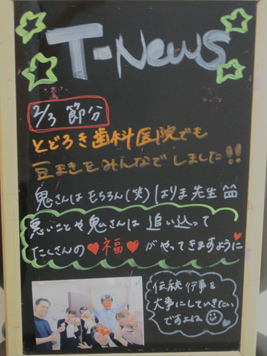 T-NEWS
2/3 節分
とどろき歯科医院でも
豆まきをみんなでしました!!
鬼さんはもちろん(笑)はりま先生
悪いことや鬼さんは追い込って
たくさんの♥福♥がやってきますように
伝統行事を
大事にしていきたい
ですよね